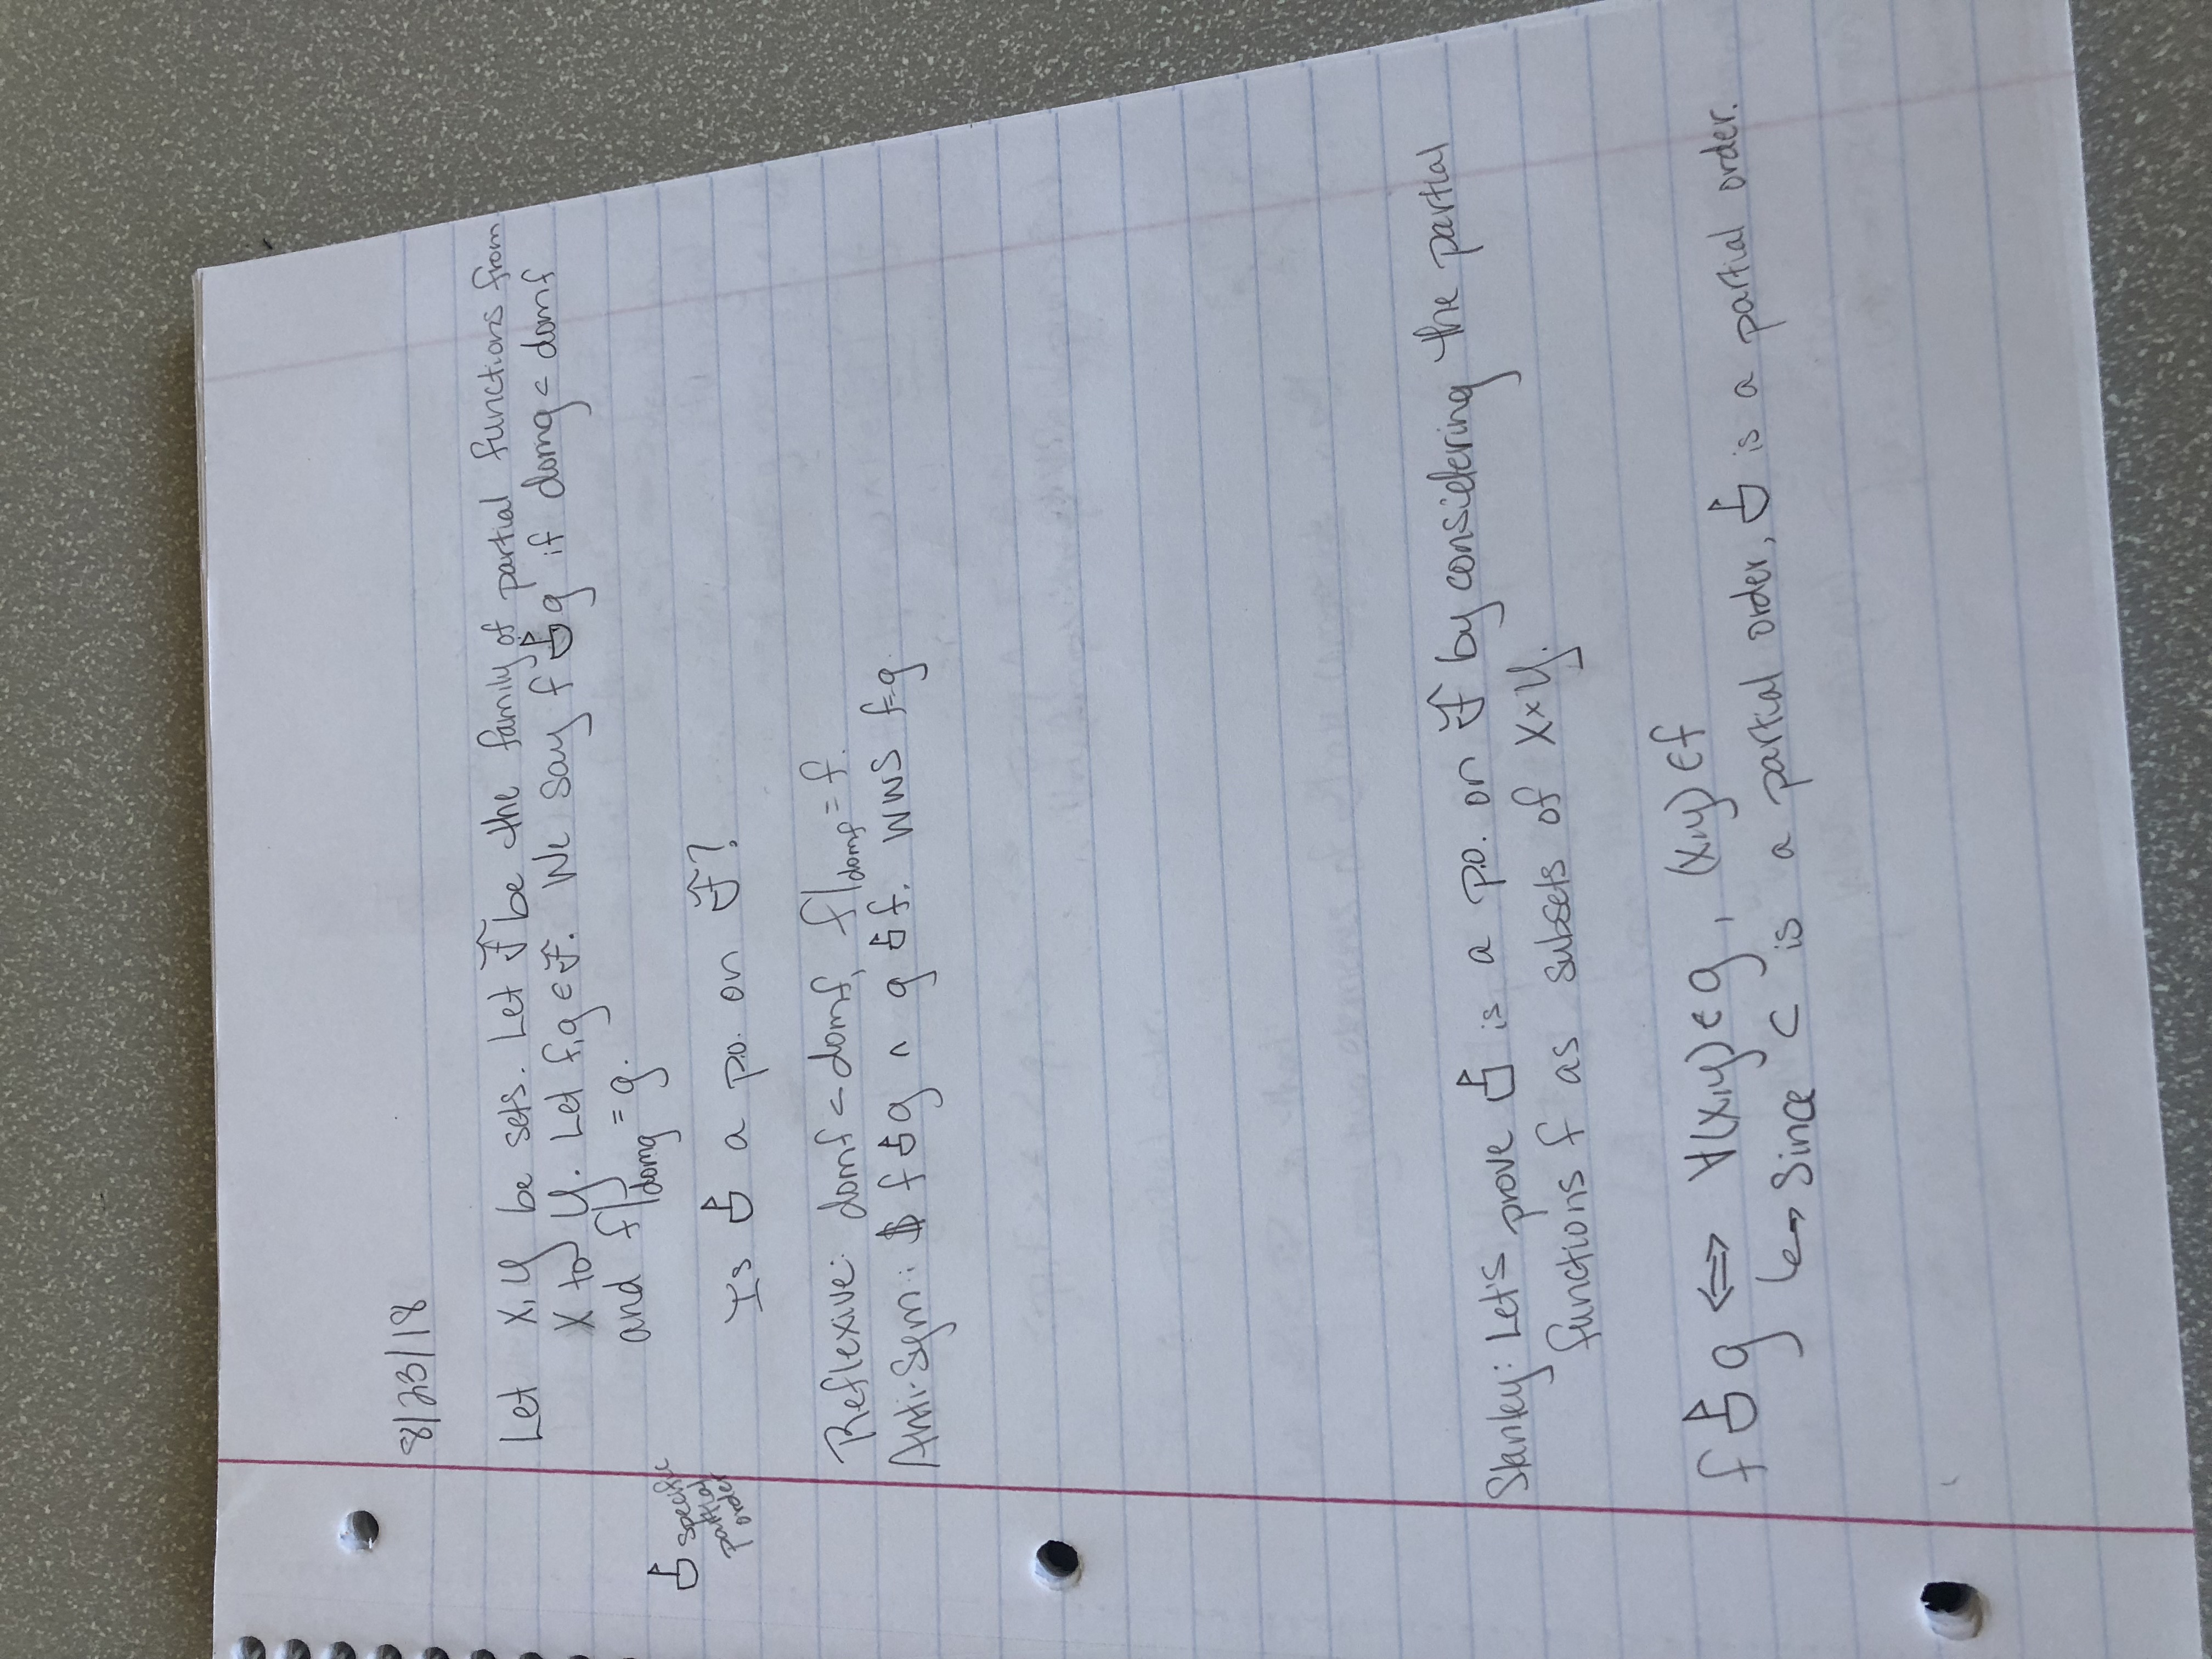 8/23/18
Let X, Y be sets. Let ℱ be the family of partial functions from
X to Y. Let f, g ∈ ℱ. We say f ⛳ g if domg ⊂ domf
and f|domg = g.
⛳ specific
partial
order
Is ⛳ a p.o. on ℱ?
Reflexive: domf ⊂ domf, f|domf = f.
Anti-Sym: $ f ⛳ g ∧ g ⛳ f. WWS f=g
Stanley: Let's prove ⛳ is a p.o. on ℱ by considering the partial
functions f as subsets of X×Y.
f ⛳ g ⟺ ∀(x,y) ∈ g, (x,y) ∈ f
↳ Since ⊂ is a partial order, ⛳ is a partial order.